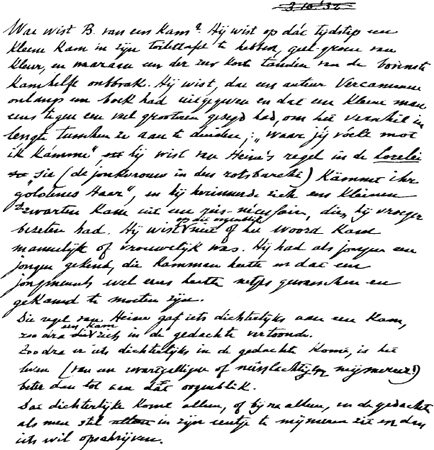 Wat wist B. van een kam? Hij wist op dát tijdstip een
kleine kam in zijn toilettafel te hebben, geel-groen van
kleur, en waaraan een der zes korte tanden van de bovenste
kamhelft ontbrak. Hij wist, dat een auteur Vercammen
onlangs een boek had uitgegeven en dat een kleine man
eens tegen een veel grootere gezegd had, om het verschil in
lengte tusschen ze aan te duiden: "waar jij vóelt mot
ik kamme" hij wist van Heine's regel in de Lorelei
"sie (de jonkvrouw in des rotsbarcke) kämmet ihr
goldenes Haar", en hij herinnerde zich een kleinen
zwarten kam uit een dien hij vroeger
bezeten had. Hij wist niet of het woord kam
mannelijk of vrouwelijk was. Hij had als jongen een
jongen gekend, die Kamman heette en dat een
jongmensch wel eens heette netjes gewasschen en
gekamd te moeten zijn.
Die regel van Heine gaf iets dichterlijks aan een kam,
zoodra een kam zich in de gedachte vertoonde.
Zoodra er iets dichterlijks in de gedachte komt, is het
leven (van een of mijmeraar)
beter dan tot een dát oogenblik.
Dat dichterlijke komt alleen, of bijna alleen, in de gedachte
als men stil in zijn eentje te mijmeren zit en dan
iets wil opschrijven.